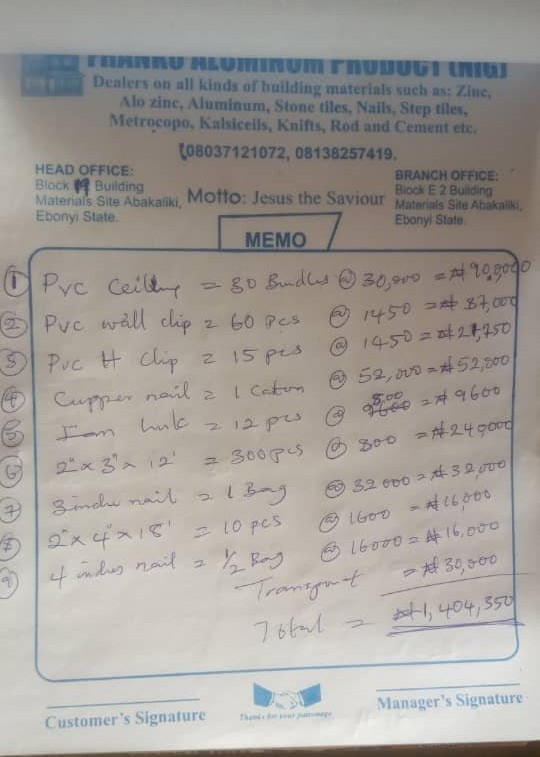 THANKU ALUMINUM PRODUCT (NIG)
Dealers on all kinds of building materials such as: Zinc,
Alo zinc, Aluminum, Stone tiles, Nails, Step tiles,
Metrocopo, Kalsiceils, Knifts, Rod and Cement etc.
08037121072, 08138257419.
HEAD OFFICE:
Block 19 Building
Materials Site Abakaliki,
Ebonyi State.
Motto: Jesus the Saviour
BRANCH OFFICE:
Block E 2 Building
Materials Site Abakaliki,
Ebonyi State.
MEMO
1 PVC Ceiling = 30 Bundles @ 30,000 = ₦900,000
2 PVC wall clip = 60 pcs @ 1450 = ₦87,000
3 PVC H Clip = 15 pcs @ 1450 = ₦21,750
4 Cupper nail = 1 Caton @ 52,000 = ₦52,000
5 = 12 pcs @ 800 = ₦9600
6 2" x 3" x 12' = 300 pcs @ 800 = ₦240,000
7 3 inche nail = 1 Bag @ 32000 = ₦32,000
8 2" x 4" x 18' = 10 pcs @ 1600 = ₦16,000
9 4 inches nail = ½ Bag @ 16000 = ₦16,000
Transport = ₦30,000
Total = ₦1,404,350
Customer's Signature
Thanks for your patronage
Manager's Signature